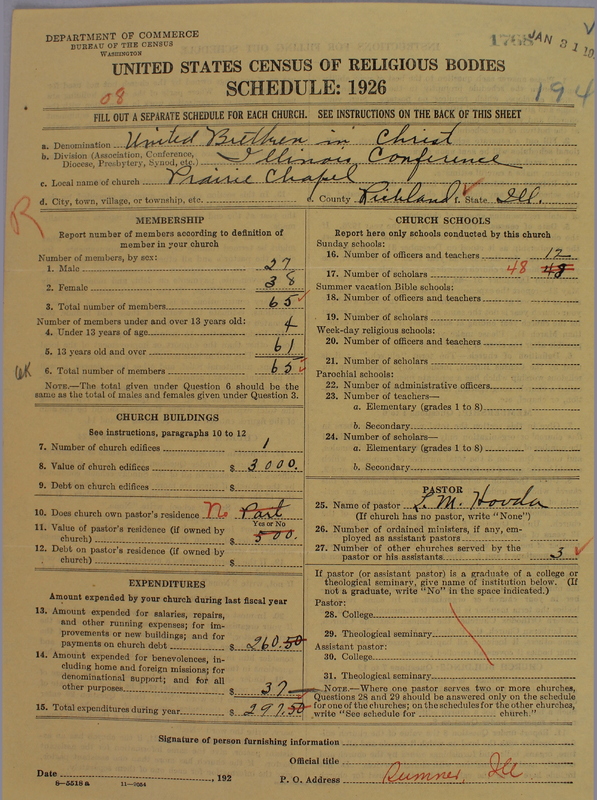 DEPARTMENT OF COMMERCE
BUREAU OF THE CENSUS
WASHINGTON
1768 JAN 31 19
UNITED STATES CENSUS OF RELIGIOUS BODIES
SCHEDULE: 1926
08
194
FILL OUT A SEPARATE SCHEDULE FOR EACH CHURCH. SEE INSTRUCTIONS ON THE BACK OF THIS SHEET
a. Denomination United Brethren in Christ
b. Division (Association, Conference, Diocese, Presbytery, Synod, etc.) Illinois Conference
c. Local name of church Prairie Chapel
d. City, town, village, or township, etc. e. County Richland f. State Ill.
R
MEMBERSHIP
Report number of members according to definition of
member in your church
Number of members, by sex:
1. Male 27
2. Female 38
3. Total number of members 65
Number of members under and over 13 years old:
4. Under 13 years of age 4
5. 13 years old and over 61
6. Total number of members 65
NOTE.—The total given under Question 6 should be the
same as the total of males and females given under Question 3.
CHURCH BUILDINGS
See instructions, paragraphs 10 to 12
7. Number of church edifices 1
8. Value of church edifices $ 3000.
9. Debt on church edifices $
10. Does church own pastor's residence No Part
Yes or No
11. Value of pastor's residence (if owned by
church) $ 500.
12. Debt on pastor's residence (if owned by
church) $
EXPENDITURES
Amount expended by your church during last fiscal year
13. Amount expended for salaries, repairs,
and other running expenses; for im-
provements or new buildings; and for
payments on church debt $ 260.50
14. Amount expended for benevolences, in-
cluding home and foreign missions; for
denominational support; and for all
other purposes $ 37
15. Total expenditures during year $ 297.50
CHURCH SCHOOLS
Report here only schools conducted by this church
Sunday schools:
16. Number of officers and teachers 12
17. Number of scholars 48 48
Summer vacation Bible schools:
18. Number of officers and teachers
19. Number of scholars
Week-day religious schools:
20. Number of officers and teachers
21. Number of scholars
Parochial schools:
22. Number of administrative officers
23. Number of teachers—
a. Elementary (grades 1 to 8)
b. Secondary
24. Number of scholars—
a. Elementary (grades 1 to 8)
b. Secondary
PASTOR
25. Name of pastor L. M. Hovda
(If church has no pastor, write "None")
26. Number of ordained ministers, if any, em-
ployed as assistant pastors
27. Number of other churches served by the
pastor or his assistants 3
If pastor (or assistant pastor) is a graduate of a college or
theological seminary, give name of institution below. (If
not a graduate, write "No" in the space indicated.)
Pastor:
28. College
29. Theological seminary
Assistant pastor:
30. College
31. Theological seminary
NOTE.—Where one pastor serves two or more churches,
Questions 28 and 29 should be answered only on the schedule
for one of the churches; on the schedules for the other churches,
write "See schedule for church."
Signature of person furnishing information
Official title
Date , 192 P. O. Address Sumner, Ill
8—5518 a 11—9064